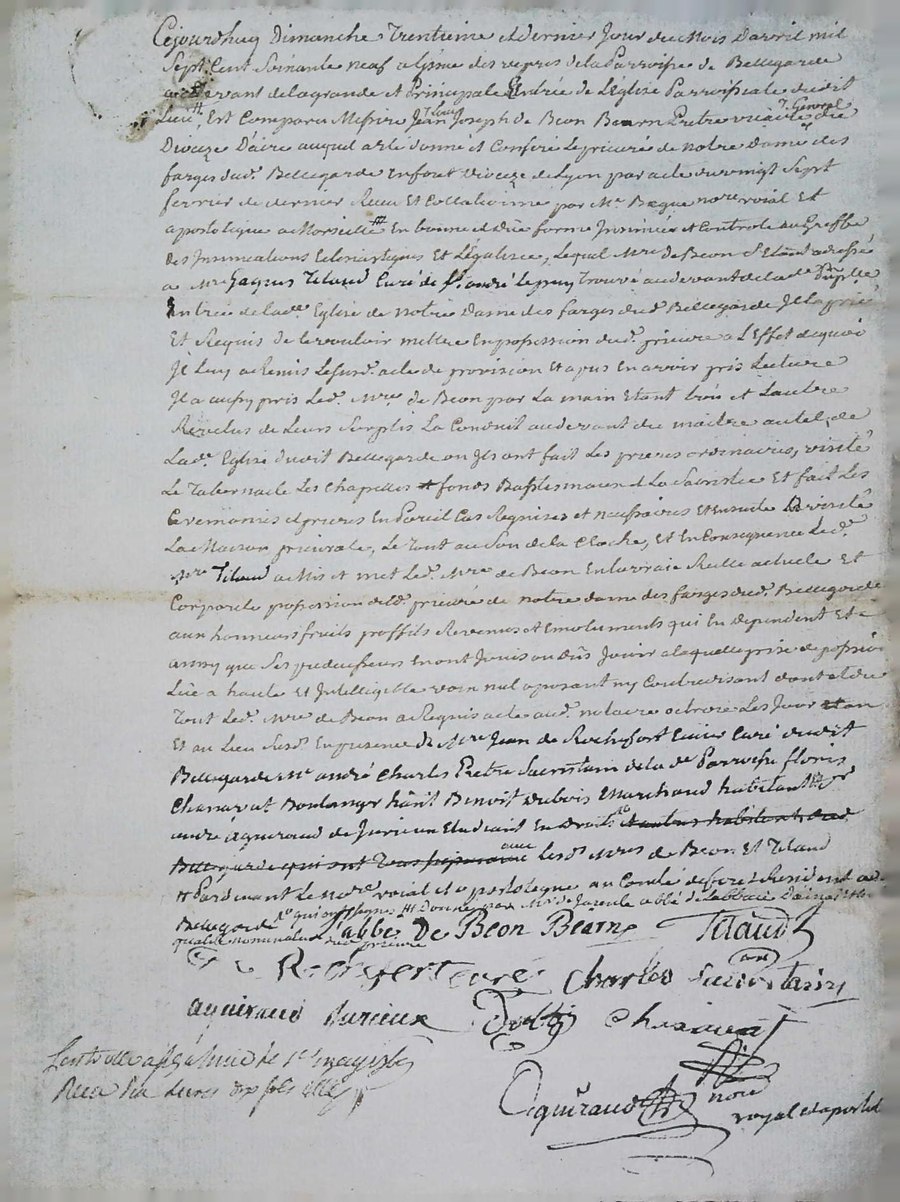 Cejourdhuy Dimanche Trentieme et dernier Jour du Mois Davril mil
Sept Cent Soixante neuf a lissue des vepres de la Parroisse de Bellegarde
au devant de la grande et Principale Entrée de l'Eglise Parroissiale dudit
Lieu, Est Comparu Messire Jean Louis Joseph de Beon Bearn Pretre vicaire General du
Dioceze Daire auquel a ete donné et Conferé Le prieuré de notre Dame des
farges dud. Bellegarde en forêt dioceze de Lyon par acte du vingt Sept
fevrier de dernier Receu Et Collationné par Me Begue nore roial Et
apostolique a Marseille # En bonne et düe forme Insinüé et Controlé au Greffe
des Insinuations Eclesiastiques Et Légalisée, Lequel Mre de Beon S'Etant adressé
a Mre Jaques Titaud Curé de St. andré Le puy Trouvé au devant de la de. Prin.lle
Entrée de la de. Eglise de notre Dame des farges dud. Bellegarde Il la prié
Et Requis de le vouloir mettre En possession dud. prieuré a L'Effet de quoi
Il Luy a Remis Le Susd. acte de provision Et apres En avoir pris Lecture
Il a aussy pris Led. Mre. de Beon par La main Etant Lun et Lautre
Revetus de Leurs Surplis La Conduit au devant du maitre autel, de
Lad. Eglise dudit Bellegarde ou Ils ont fait Les prieres ordinaires, visité
Le Tabernacle Les Chapelles fonds Baptismaux et La Sacristie Et fait Les
Ceremonies et prieres En Pareil Cas Requises et necessaires Et Ensuite visité
La Maison prieurale, Le Tout au Son de la Cloche, Et En Consequence Led.
Mre Titaud a Mis et met Led. Mre de Beon En La vraie Reelle actuelle Et
Corporele possession dud. prieuré de notre dame des farges dud. Bellegarde
aux honneurs fruits proffits Revenus et Emoluments qui En dependent Et
ainsy que Ses predecesseurs En ont Jouis ou dûs Jouir a laquelle prise de possession
Lüe a haute Et Intelligible voix nul oposant ny Contredisant dont et du
Tout Led. Mre de Beon a Requis acte aud. notaire octroïé Les Jour et an
Et au Lieu Susd. En presence de Mre Jean de Rochefort Curé dudit
Bellegarde Me andré Charles Pretre Sacristain de la de Parroisse floris
Chanavat Boulanger hânt Benoit Dubois Marchand habitant
andré aguiraud de Jurieux Etudiant En droit
Bellegarde qui ont avec Lesd. Mres de Beon Et Titaud
Pardevant Le nore roial et apostolique au Comté de forez Resident a
Bellegarde qui ont signé # Donnée par Mr de Jarente abbé de Labbaie
qualité nominateur dud prieuré
L'abbé De Beon Béarn Titaud
De Rochefort Curé Charles Sacristain
aguiraud Jurieux Dubois Chanavat
Aguiraud nore
royal et apostol